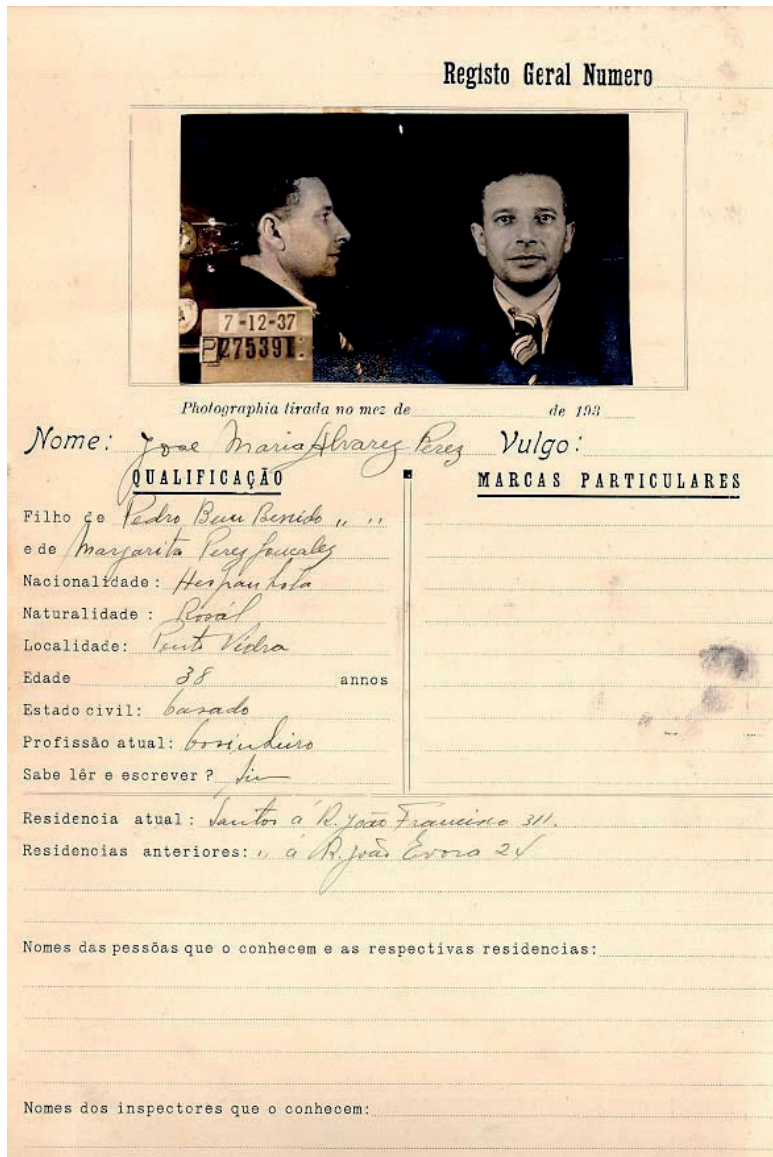 Registo Geral Numero
7-12-37
P 27539
Photographia tirada no mez de de 193
Nome: Jose Maria Alvarez Perez Vulgo:
QUALIFICAÇÃO
MARCAS PARTICULARES
Filho de Pedro Benido " "
e de Margarita Perez Goncalez
Nacionalidade: Hespanhola
Naturalidade: Rosál
Localidade: Ponte Vidra
Edade 38 annos
Estado civil: Casado
Profissão atual: Cosinheiro
Sabe lêr e escrever? Sim
Residencia atual: Santos á R. João Francisco 311.
Residencias anteriores: " á R. João Evora 24
Nomes das pessôas que o conhecem e as respectivas residencias:
Nomes dos inspectores que o conhecem: